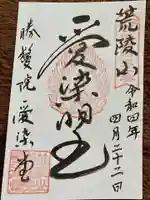 荒陵山
令和四年
四月二十二日
愛染明王
勝鬘院
愛染堂